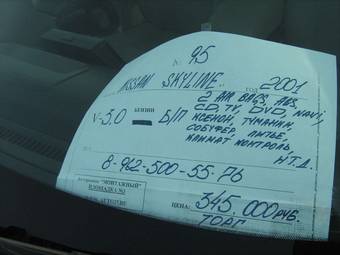 № 95
NISSAN SKYLINE ГОД 2001
V-3,0 БЕНЗИН Б/П
2 AIR BAGS, ABS,
CD TV, DVD, NAVI,
КСЕНОН, ТУМАНКИ,
САБУФЕР, ЛИТЬЕ,
КЛИМАТ КОНТРОЛЬ,
И Т.Д.
8-962-500-55-76
Авторынок "МОНТАЖНЫЙ"
ПЛОЩАДКА №3
ЦЕНА: 345.000 РУБ.
ТОРГ